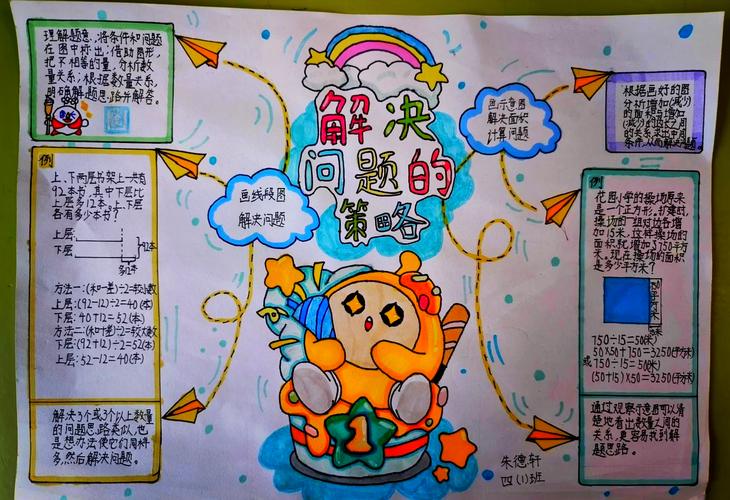 解决
问题的
策略
理解题意,将条件和问题
在图中标出;借助图形,
把不相等的量,分析数
量关系;根据数量关系,
明确解题思路并解答。
画线段图
解决问题
例
上、下两层书架上一共有
92本书,其中下层比
上层多12本。上、下层
各有多少本书?
上层:
下层:
92本
多12本
方法一:(和一差)÷2=较小数
上层:(92-12)÷2=40(本)
下层:40+12=52(本)
方法二:(和十差)÷2=较大数
下层:(92+12)÷2=52(本)
上层:52-12=40(本)
解决3个或3个以上数量
的问题思路类似,也
是想办法使它们同样
多,然后解决问题。
画示意图
解决面积
计算问题
根据画好的图
分析增加(减少)
的面积与增加
(减少)的边之间
的关系,
例
花园小学的操场原来
是一个正方形。扩建时,
操场的一组对边各增
加15米,这样操场的
面积就增加了750平方
米。现在操场的面积
是多少平方米?
750平方米
15米
750÷15=50(米)
50×50+750=3250(平方米)
或750÷15=50(米)
(50+15)×50=3250(平方米)
通过观察示意图可以清
楚地看出数量之间的
关系,更容易找到解
题思路。
1
朱德轩
四(1)班